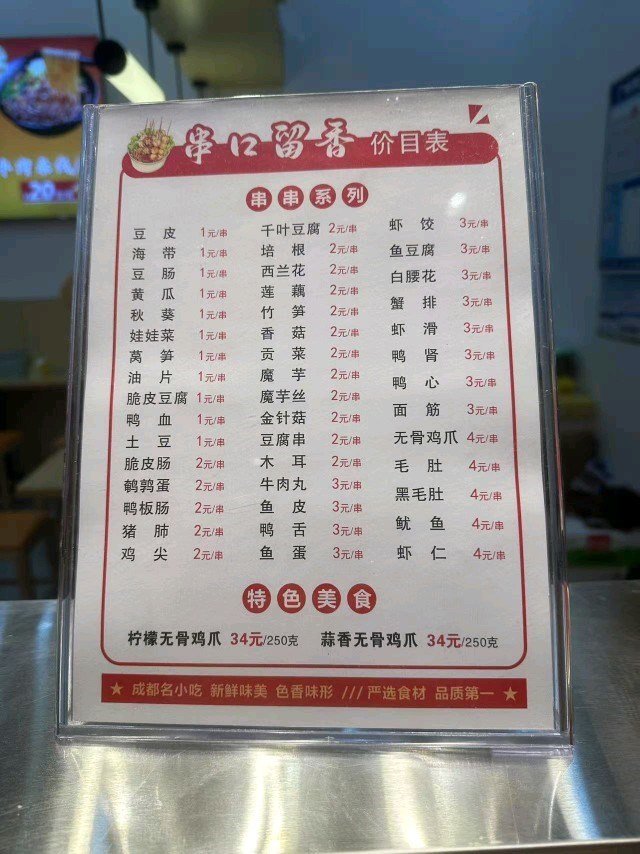 串口留香 价目表
串串系列
豆皮 1元/串
海带 1元/串
豆肠 1元/串
黄瓜 1元/串
秋葵 1元/串
娃娃菜 1元/串
莴笋 1元/串
油片 1元/串
脆皮豆腐 1元/串
鸭血 1元/串
土豆 1元/串
脆皮肠 2元/串
鹌鹑蛋 2元/串
鸭板肠 2元/串
猪肺 2元/串
鸡尖 2元/串
千叶豆腐 2元/串
培根 2元/串
西兰花 2元/串
莲藕 2元/串
竹笋 2元/串
香菇 2元/串
贡菜 2元/串
魔芋 2元/串
魔芋丝 2元/串
金针菇 2元/串
豆腐串 2元/串
木耳 2元/串
牛肉丸 3元/串
鱼皮 3元/串
鸭舌 3元/串
鱼蛋 3元/串
虾饺 3元/串
鱼豆腐 3元/串
白腰花 3元/串
蟹排 3元/串
虾滑 3元/串
鸭肾 3元/串
鸭心 3元/串
面筋 3元/串
无骨鸡爪 4元/串
毛肚 4元/串
黑毛肚 4元/串
鱿鱼 4元/串
虾仁 4元/串
特色美食
柠檬无骨鸡爪 34元/250克 蒜香无骨鸡爪 34元/250克
★ 成都名小吃 新鲜味美 色香味形 /// 严选食材 品质第一 ★
20